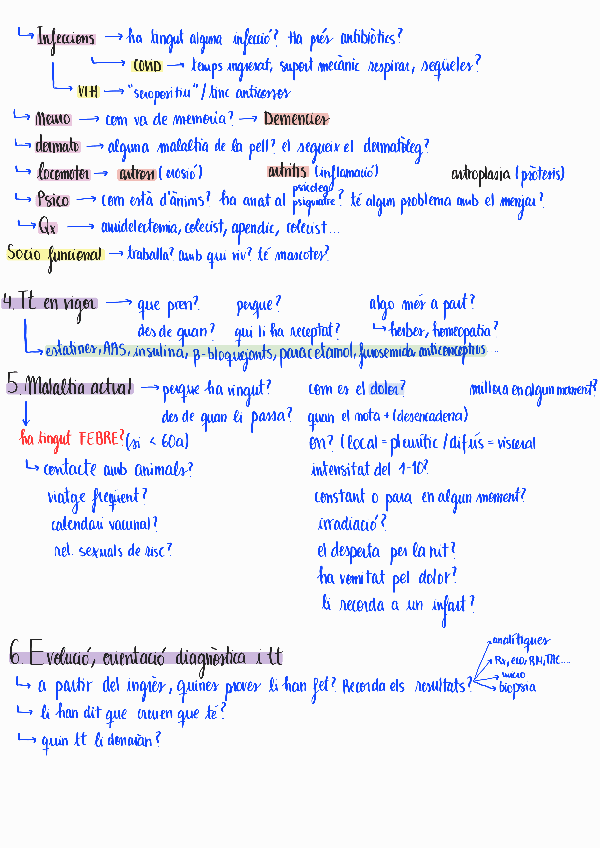 ↳ Infeccions → ha tingut alguna infecció? Ha près antibiòtics?
↳ COVID → temps ingressat, suport mecànic respirar, seqüeles?
↳ VIH → "seropositiu" / tinc anticossos
↳ Neuro → com va de memoria? → Demències
↳ dermato → alguna malaltia de la pell? el segueix el dermatòleg?
↳ locomotor → artrosi (erosió) artritis (inflamació) artroplasia (pròtesis)
↳ Psico → com està d'ànims? ha anat al psicoleg / psiquiatre? té algun problema amb el menjar?
↳ Qx → amidelectomia, colecist, apendic, colecist...
Socio funcional → traballa? amb qui viv? té mascotes?
4. Tt en vigor → que pren? perque? algo més a part?
des de quan? qui li ha receptat? ↳ herbes, homeopatia?
→ estatines, AAS, insulina, β-bloquejants, paracetamol, furosemida, anticonceptius ...
5. Malaltia actual → perque ha vingut? com es el dolor? millora en algun moment?
des de quan li passa? quan el nota + (desencadena)
ha tingut FEBRE? (si < 60a) on? (local = pleurític / difús = visceral
↳ contacte amb animals? intensitat del 1-10?
viatge freqüent? constant o para en algun moment?
calendari vacunal? irradiació?
rel. sexuals de risc? el desperta per la nit?
ha vomitat pel dolor?
li recorda a un infart?
6. Evolució, orientació diagnòstica i tt
↳ a partir del ingrès, quines proves li han fet? Recorda els resultats? → analítiques
→ Rx, eco, RN, TAC....
→ micro
→ biopsia
↳ li han dit que creuen que té?
↳ quin tt li donaran?